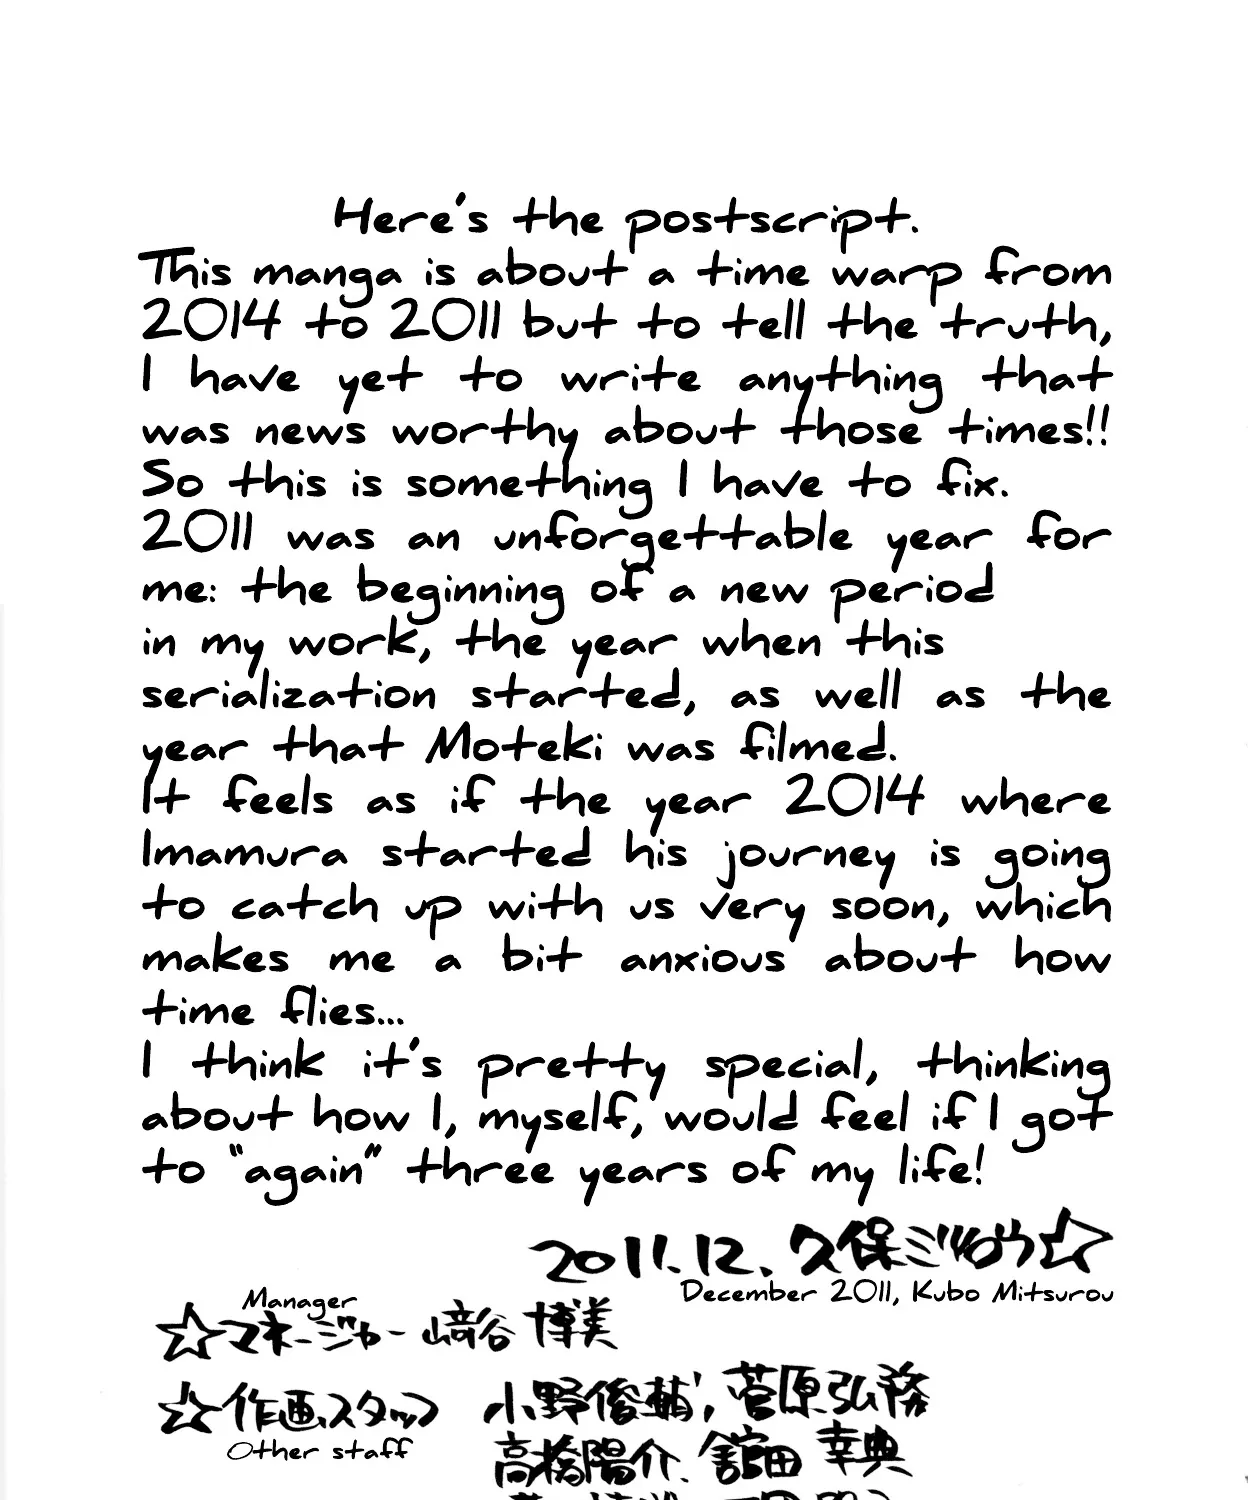 Here's the postscript.
This manga is about a time warp from
2014 to 2011 but to tell the truth,
I have yet to write anything that
was news worthy about those times!!
So this is something I have to fix.
2011 was an unforgettable year for
me: the beginning of a new period
in my work, the year when this
serialization started, as well as the
year that Moteki was filmed.
It feels as if the year 2014 where
Imamura started his journey is going
to catch up with us very soon, which
makes me a bit anxious about how
time flies...
I think it's pretty special, thinking
about how I, myself, would feel if I got
to "again" three years of my life!
2011.12. 久保ミツロウ☆
December 2011, Kubo Mitsurou
Manager
☆マネージャー 﨑谷 博美
☆作画スタッフ 小野俊輔, 菅原弘務
Other staff
高橋陽介. 舘田 幸典